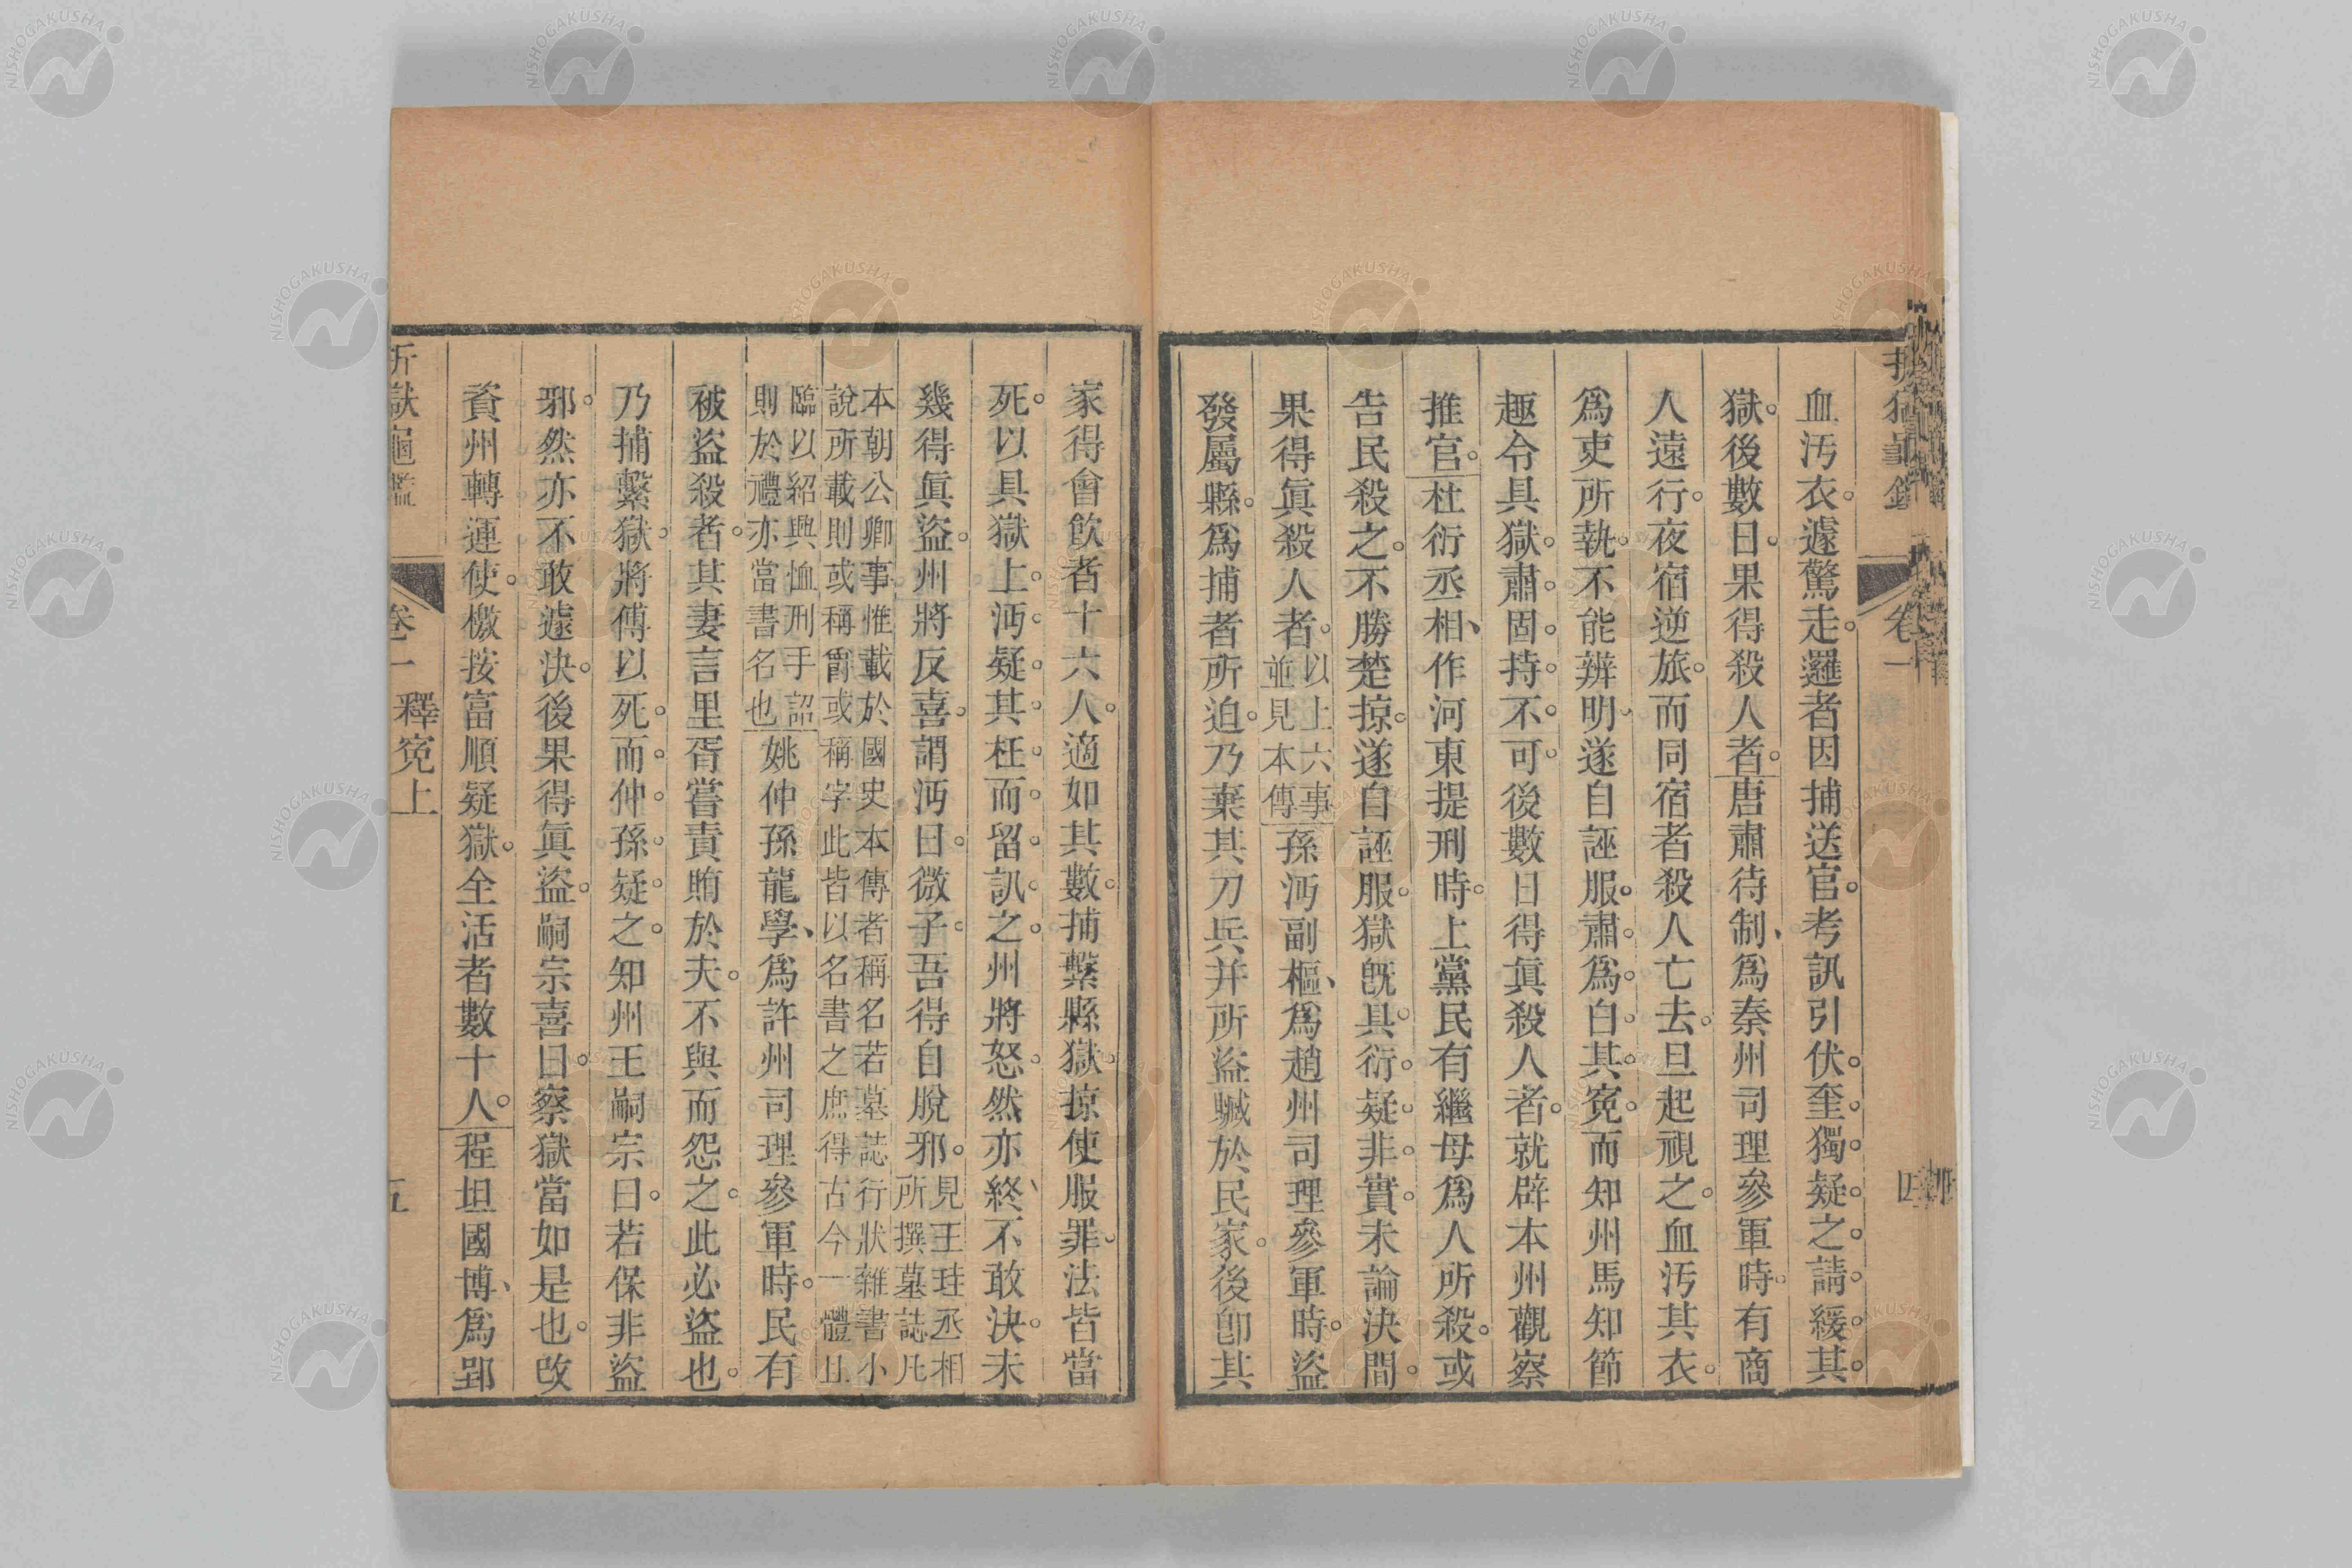 血汚衣。遽驚走。邏者因捕送官。考訊引伏。奎獨疑之。請緩其
獄。後數日。果得殺人者。唐肅待制、爲秦州司理參軍時。有商
人遠行。夜宿逆旅。而同宿者殺人亡去。旦起視之。血汚其衣。
爲吏所執。不能辨明。遂自誣服。肅爲白其寃。而知州馬知節
趣令具獄。肅固持不可。後數日得眞殺人者。就辟本州觀察
推官。杜衍丞相、作河東提刑時。上黨民有繼母爲人所殺。或
告民殺之。不勝楚掠。遂自誣服。獄旣具。衍疑非實。未論決間。
果得眞殺人者。以上六事並見本傳孫沔副樞、爲趙州司理參軍時。盜
發屬縣。爲捕者所迫。乃棄其刀兵幷所盜贓於民家。後卽其
家得會飲者十六人。適如其數。捕繫縣獄。掠使服罪。法皆當
死。以具獄上。沔疑其枉。而留訊之。州將怒。然亦終、不敢決。未
幾得眞盜。州將反喜。謂沔曰。微子。吾得自脫邪。見王珪丞相所撰墓誌凡
本朝公卿事惟載於國史本傳者稱名若墓誌行狀雜書小
說所載則或稱爵或稱字此皆以名書之庶得古今一體且
臨以紹興恤刑手詔
則於禮亦當書名也姚仲孫龍學、爲許州司理參軍時。民有
被盜殺者。其妻言里胥嘗責賄於夫。不與而怨之。此必盜也。
乃捕繫獄。將傅以死。而仲孫疑之。知州王嗣宗曰。若保非盜
邪。然亦不敢遽決。後果得眞盜。嗣宗喜曰。察獄當如是也。改
資州轉運使。檄按富順疑獄。全活者數十人。程坦國博、爲郢
折獄龜鑑
卷一
釋寃上
五
四
NISHOGAKUSHA